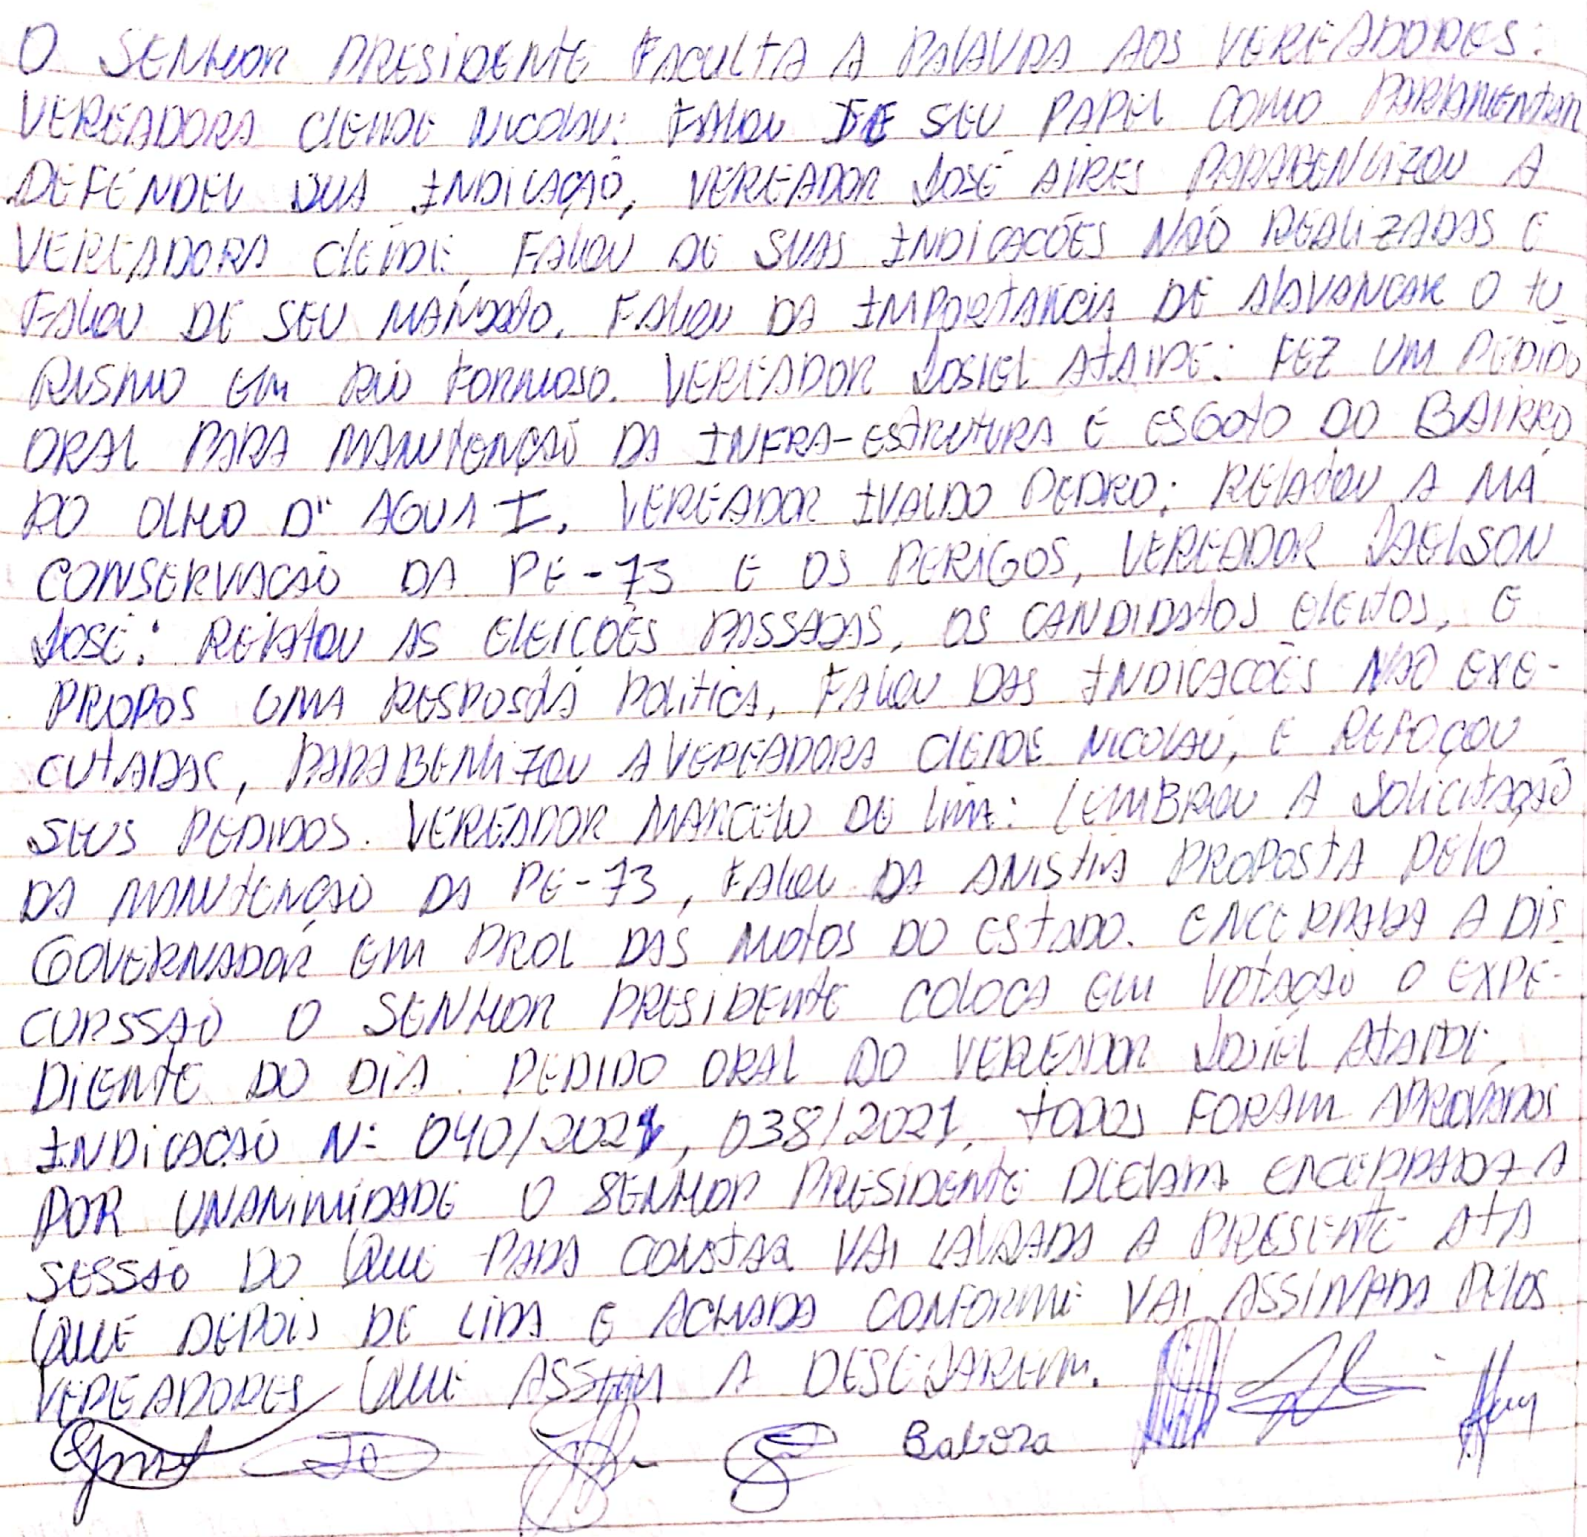 O SENHOR PRESIDENTE FACULTA A PALAVRA AOS VEREADORES:
VEREADORA CLEIDE NICOLAU: FALOU DE SEU PAPEL COMO PARLAMENTAR
DEFENDEU SUA INDICAÇÃO, VEREADOR JOSÉ AIRES PARABENLIZOU A
VEREADORA CLEIDE, FALOU DE SUAS INDICACÕES NÃO REALIZADAS E
FALOU DE SEU MANDATO. FALOU DA IMPORTANCIA DE ALAVANCAR O TU_
RISMO EM RIO FORMOSO. VEREADOR JOSIEL ATAIDE: FEZ UM PEDIDO
ORAL PARA MANUTENÇÃO DA INFRA-ESTRUTURA E ESGOTO DO BAIRRO
RO OLHO D" AGUA I. VEREADOR IVALDO PEDRO: RELATOU A MÁ
CONSERVACÃO DA PE-73 E OS PERIGOS, VEREADOR JAELSON
JOSÉ: RELATOU AS ELEICÕES PASSADAS, OS CANDIDATOS ELEITOS, E
PROPOS UMA RESPOSTA POLITICA, FALOU DAS INDICACÕES NÃO EXE-
CUTADAS, PARABENLIZOU A VEREADORA CLEIDE NICOLAU, E REFOÇOU
SEUS PEDIDOS. VEREADOR MARCELO DE LIMA: LEMBROU A SOLICITAÇÃO
DA MANUTENÇÃO DA PE-73, FALOU DA ANISTIA PROPOSTA PELO
GOVERNADOR EM PROL DAS MOTOS DO ESTADO. ENCERRADA A DIS_
CURSSÃO O SENHOR PRESIDENTE COLOCA EM VOTAÇÃO O EXPE-
DIENTE DO DIA: PEDIDO ORAL DO VEREADOR JOSIEL ATAIDE.
INDICAÇÃO N= 040/2021, 038/2021, TODOS FORAM APROVADOS
POR UNANIMIDADE O SENHOR PRESIDENTE DECLARA ENCERRADA A
SESSÃO DO QUE PARA CONSTAR VAI LAVRADA A PRESENTE ATA
QUE DEPOIS DE LIDA E ACHADA CONFORME VAI ASSINADA PELOS
VEREADORES QUE ASSIM A DESEJAREM.